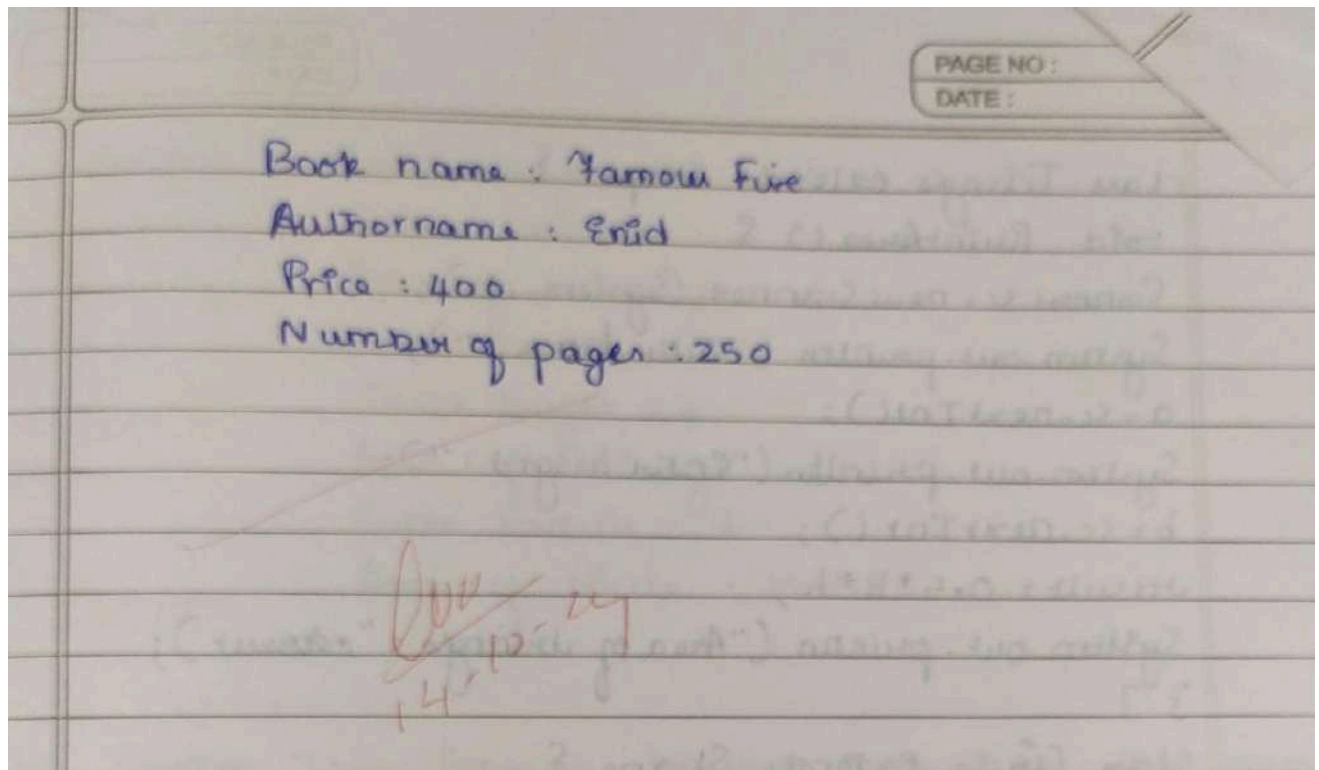 PAGE NO :
DATE :
Book name : Famous Five
Author name : Enid
Price : 400
Number of pages : 250
14-10-24